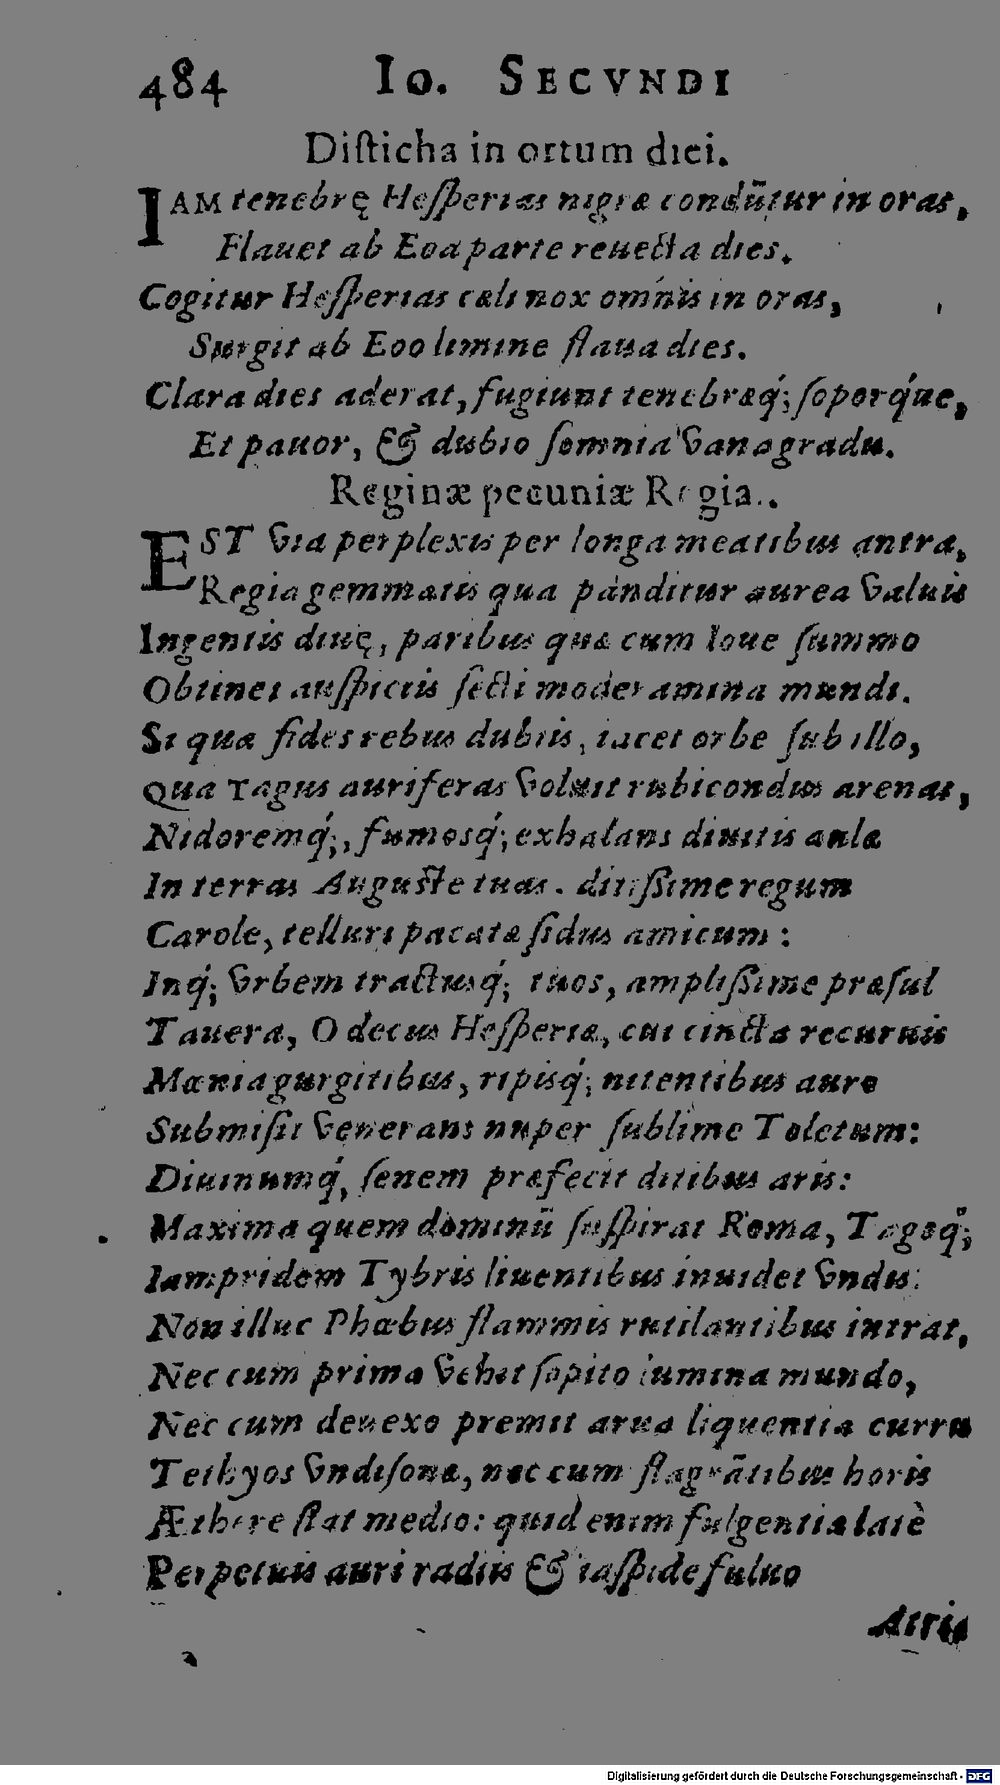 484 Io. SECVNDI
Disticha in ortum diei.
IAM tenebrę Hesperias nigræ condūtur in oras,
Flauet ab Eoa parte reuecta dies.
Cogitur Hesperias cæli nox omnis in oras,
Surgit ab Eoo limine flaua dies.
Clara dies aderat, fugiunt tenebræq́; soporq́ue,
Et pauor, & dubio somnia vana gradu.
Reginæ pecuniæ Regia.
EST via perplexis per longa meatibus antra,
Regia gemmatis qua panditur aurea valuis
Ingentis diuę, paribus quæ cum Ioue summo
Obtinet auspiciis secti moderamina mundi.
Si qua fides rebus dubiis, iacet orbe sub illo,
Qua Tagus auriferas voluit rubicondus arenas,
Nidoremq́;, fumosq́; exhalans diuitis aulæ
In terras Auguste tuas. ditissime regum
Carole, telluri pacatæ sidus amicum:
Inq́; vrbem tractusq́; tuos, amplissime præsul
Tauera, O decus Hesperiæ, cui cincta recuruis
Mœnia gurgitibus, ripisq́; nitentibus auro
Submisit venerans nuper sublime Toletum:
Diuinumq́, senem præfecit ditibus aris:
Maxima quem dominū suspirat Roma, Tagoq́;
Iampridem Tybris liuentibus inuidet vndis:
Non illuc Phœbus flammis rutilantibus intrat,
Nec cum prima vehit sopito lumina mundo,
Nec cum deuexo premit arua liquentia curru
Tethyos vndisonæ, nec cum flagrātibus horis
Æthere stat medio: quid enim fulgentia latè
Perpetuis auri radiis & iaspide fuluo
Atria
Digitalisierung gefördert durch die Deutsche Forschungsgemeinschaft - DFG